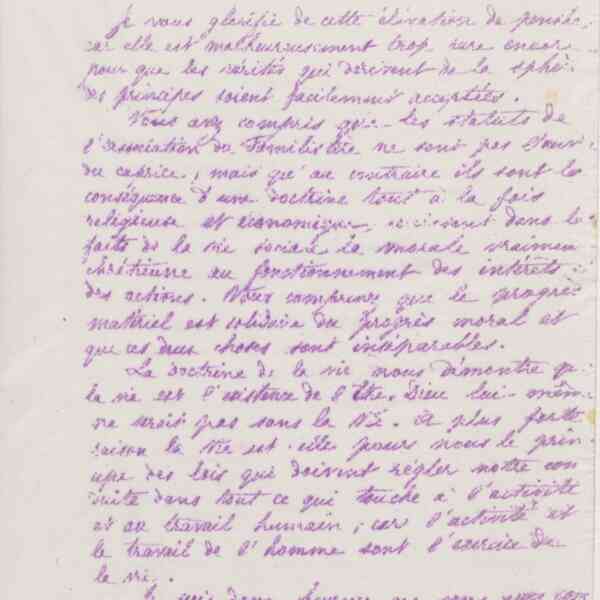 Je vous glorifie de cette élévation de pensée,
car elle est malheureusement trop rare encore
pour que les vérités qui dérivent de la sphè-
des principes soient facilement acceptées.
Vous avez compris que les statuts de
l'association du Familistère ne sont pas l'œuv
du caprice, mais qu'au contraire ils sont la
conséquence d'une doctrine tout à la fois
religieuse et économique, dans le
faits de la vie sociale la morale vraimen
chrétienne au fonctionnement des intérêts
des actions. Vous comprenez que le progrè
matériel est solidaire du progrès moral et
que ces deux choses sont inséparables.
La doctrine de la vie nous démontre qu
la vie est l'existence de l'être. Dieu lui-mêm
ne serait pas sans la vie. A plus forte
raison la vie est-elle pour nous le prin-
cipe des lois qui doivent régler notre con
duite dans tout ce qui touche à l'activité
et au travail humain, car l'activité et
le travail de l'homme sont l'exercice de
la vie.
Je suis dans